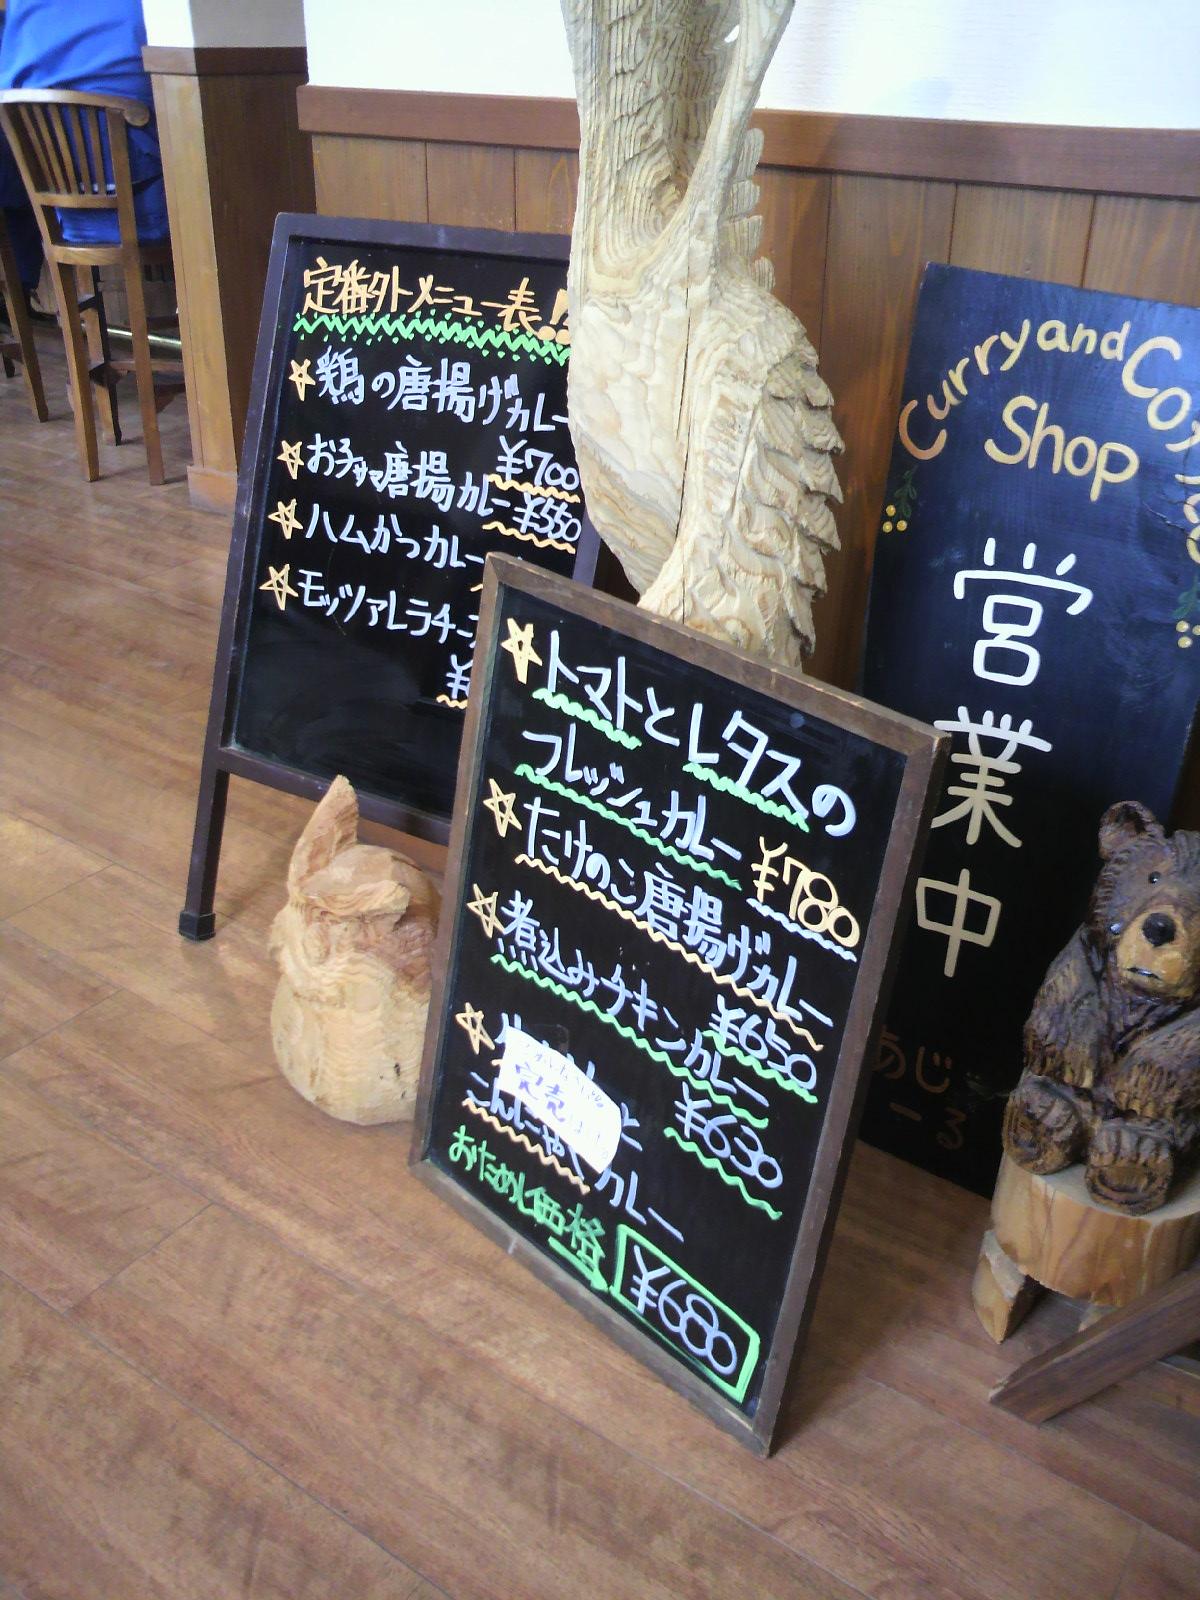 定番外メニュー表!!
☆鶏の唐揚げカレー
¥700
☆お子サマ唐揚カレー ¥550
☆ハムかつカレー
☆モッツァレラチー
¥
☆トマトとレタスの
フレッシュカレー
¥780
☆たけのこ唐揚げカレー
¥650
☆煮込みチキンカレー
¥630
☆
完売
と
こんにゃくカレー
おためし価格
¥680
Curry and Cof
Shop
営業中
あじ
ーる